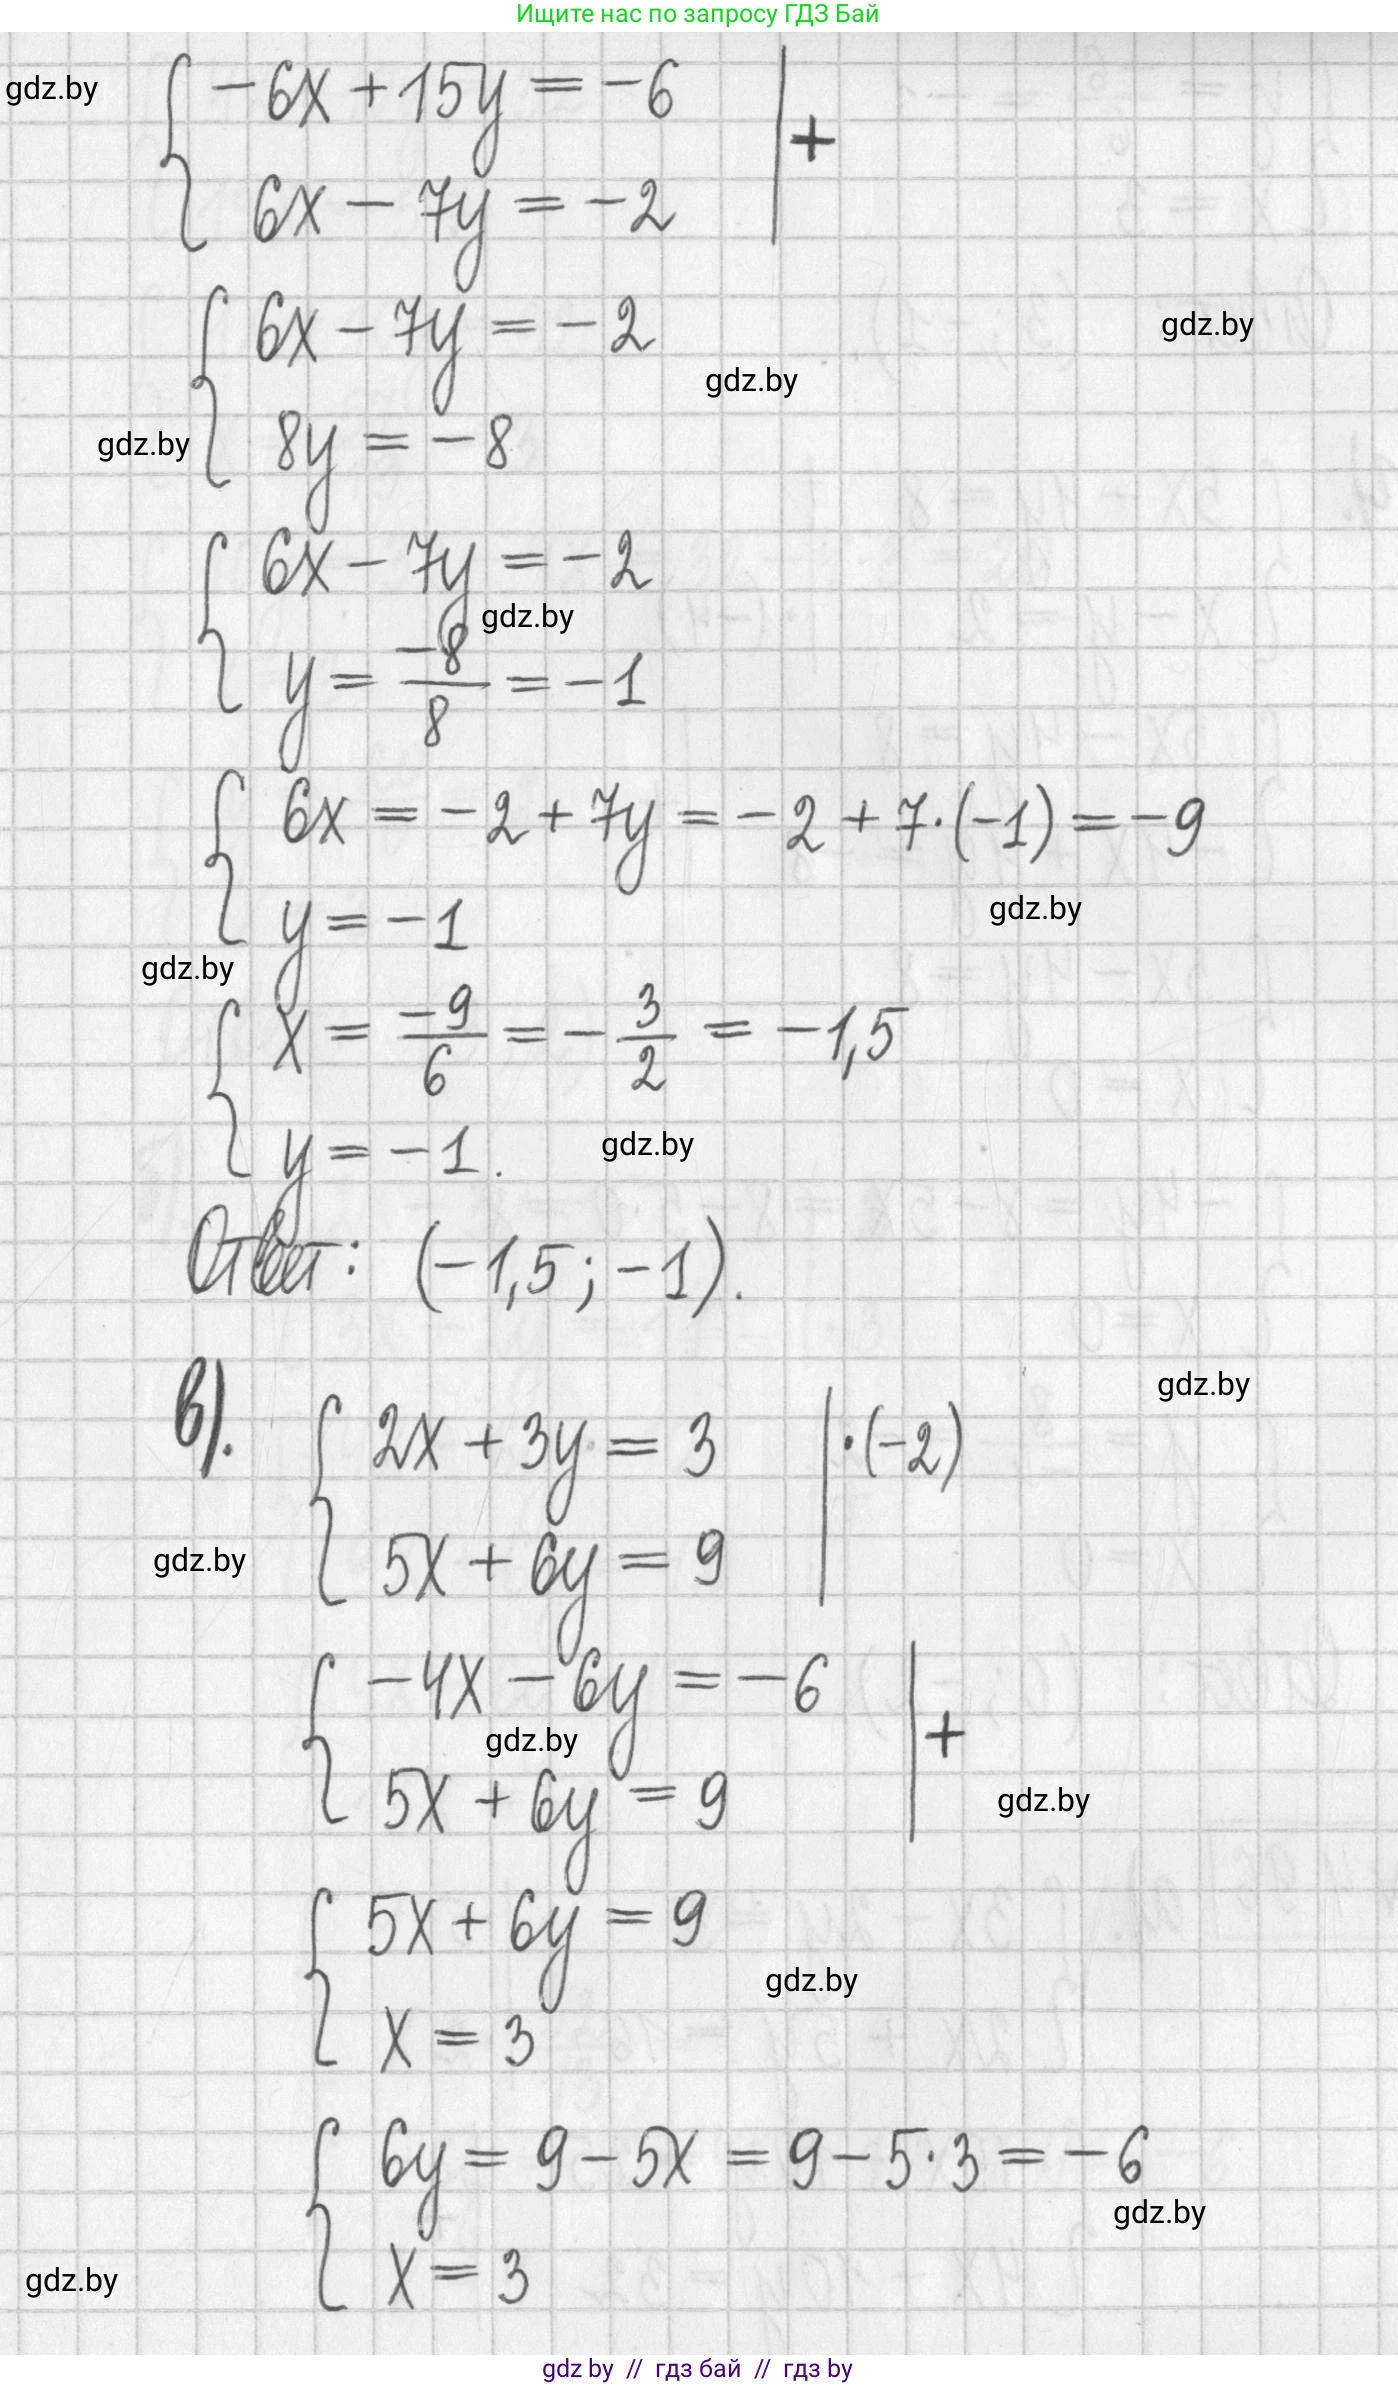 Ищите нас по запросу ГДЗ Бай
gdz.by
{ -6x + 15y = -6 | +
6x - 7y = -2
gdz.by
{ 6x - 7y = -2
gdz.by
gdz.by
8y = -8
{ 6x - 7y = -2
gdz.by
y = -8/8 = -1
{ 6x = -2 + 7y = -2 + 7·(-1) = -9
gdz.by
y = -1
gdz.by
{ x = -9/6 = -3/2 = -1,5
y = -1.
gdz.by
Ответ: (-1,5; -1).
gdz.by
в). { 2x + 3y = 3 | ·(-2)
gdz.by
5x + 6y = 9
{ -4x - 6y = -6 | +
gdz.by
5x + 6y = 9
gdz.by
{ 5x + 6y = 9
gdz.by
x = 3
{ 6y = 9 - 5x = 9 - 5·3 = -6
gdz.by
x = 3
gdz.by
gdz by // гдз бай // гдз by